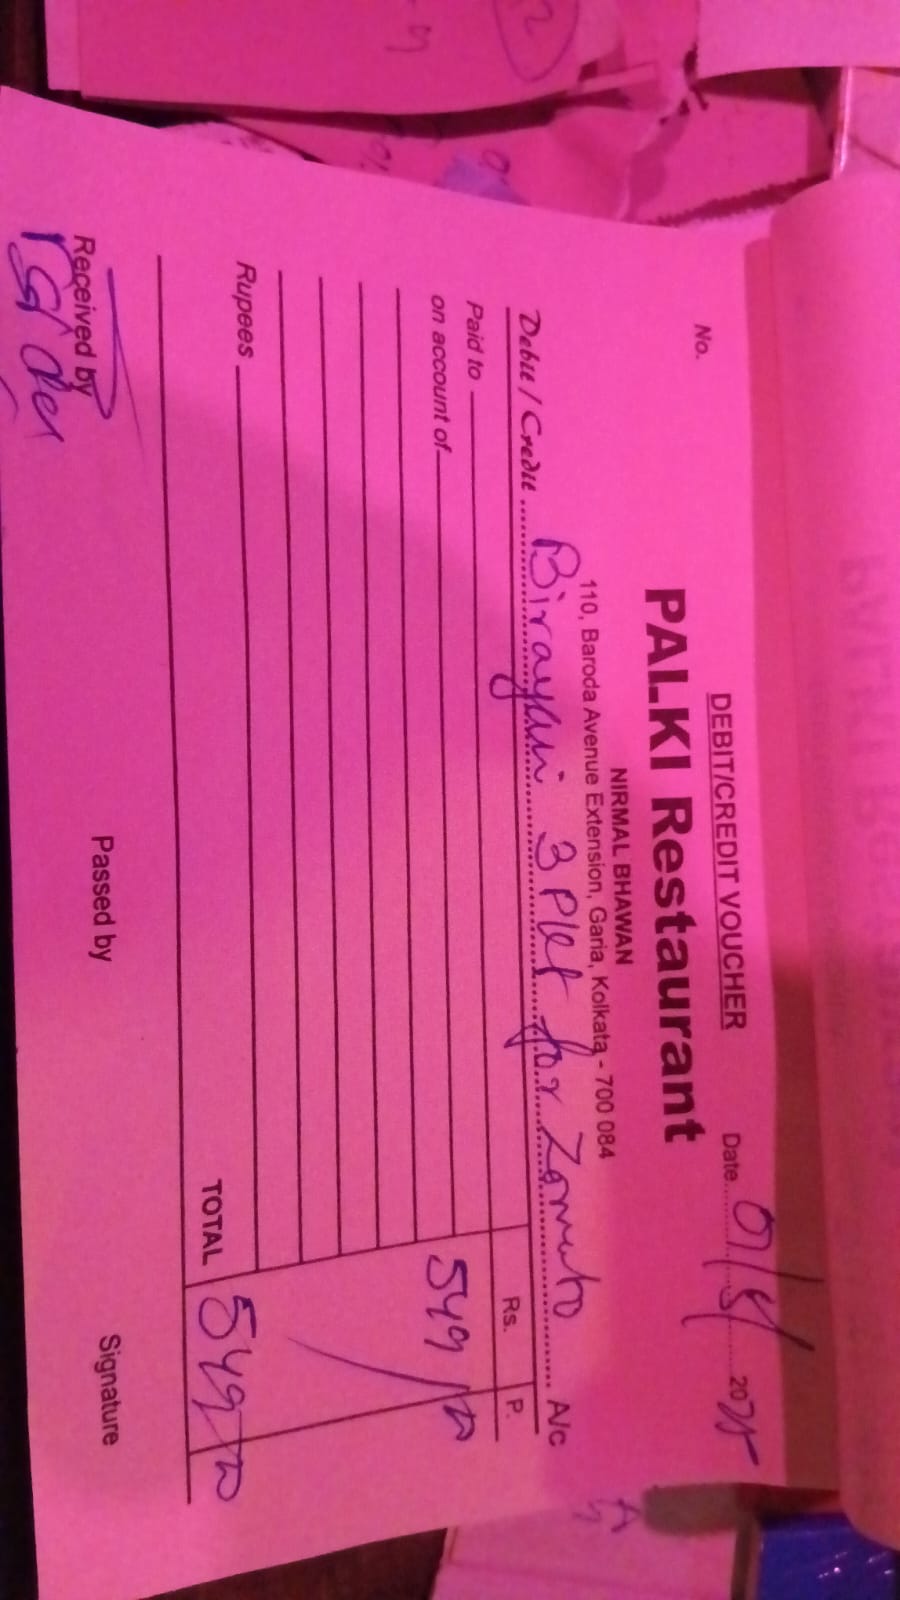 DEBIT/CREDIT VOUCHER
No.
Date
2025
PALKI Restaurant
NIRMAL BHAWAN
110, Baroda Avenue Extension, Garia, Kolkata - 700 084
Debit / Credit Birayani 3 Plet for Zomato A/c
Rs. P.
Paid to
on account of 549/00
Rupees
TOTAL 549/00
Received by Passed by Signature